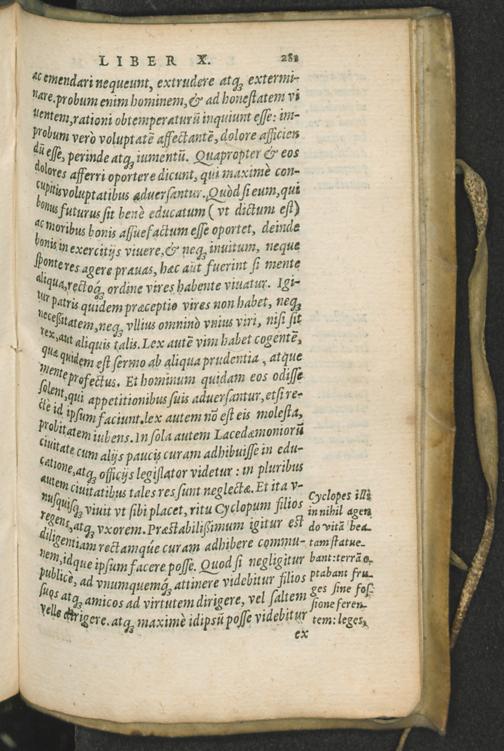 LIBER X. 282
ac emendari nequeunt, extrudere atq; extermi-
nare. probum enim hominem, & ad honestatem vi
uentem, rationi obtemperaturũ inquiunt esse: im-
probum verò voluptatẽ affectantẽ, dolore afficien
dũ esse, perinde atq; iumentũ. Quapropter & eos
dolores afferri oportere dicunt, qui maximè con-
cupitis voluptatibus aduersantur. Quòd si eum, qui
bonus futurus sit benè educatum ( vt dictum est)
ac moribus bonis assuefactum esse oportet, deinde
bonis in exercitijs viuere, & neq; inuitum, neque
sponte res agere prauas, hæc aũt fuerint si mente
aliqua, rectoq; ordine vires habente viuatur. Igi-
tur patris quidem præceptio vires non habet, neq;
necessitatem, neq; vllius omninò vnius viri, nisi sit
rex, aut aliquis talis. Lex autẽ vim habet cogentẽ,
quæ quidem est sermo ab aliqua prudentia , atque
mente profectus. Et hominum quidam eos odisse
solent, qui appetitionibus suis aduersantur, etsi re-
ctè id ipsum faciunt. lex autem nõ est eis molesta,
probitatem iubens. In sola autem Lacedæmoniorũ
ciuitate cum alijs paucis curam adhibuisse in edu-
catione, atq; officijs legislator videtur : in pluribus
autem ciuitatibus tales res sunt neglectæ. Et ita v-
nusquisq; viuit vt sibi placet, ritu Cyclopum filios
regens, atq; vxorem. Præstabilissimum igitur est
diligentiam rectamque curam adhibere commu-
nem, idque ipsum facere posse. Quod si negligitur
publicè, ad vnumquemq; attinere videbitur filios
suos atq; amicos ad virtutem dirigere, vel saltem
velle dirigere. atq; maximè id ipsũ posse videbitur
ex
Cyclopes illi
in nihil agen
do vitã bea
tam statue
bant: terrã o
ptabant fru
ges sine fos
sione feren
tem: leges,